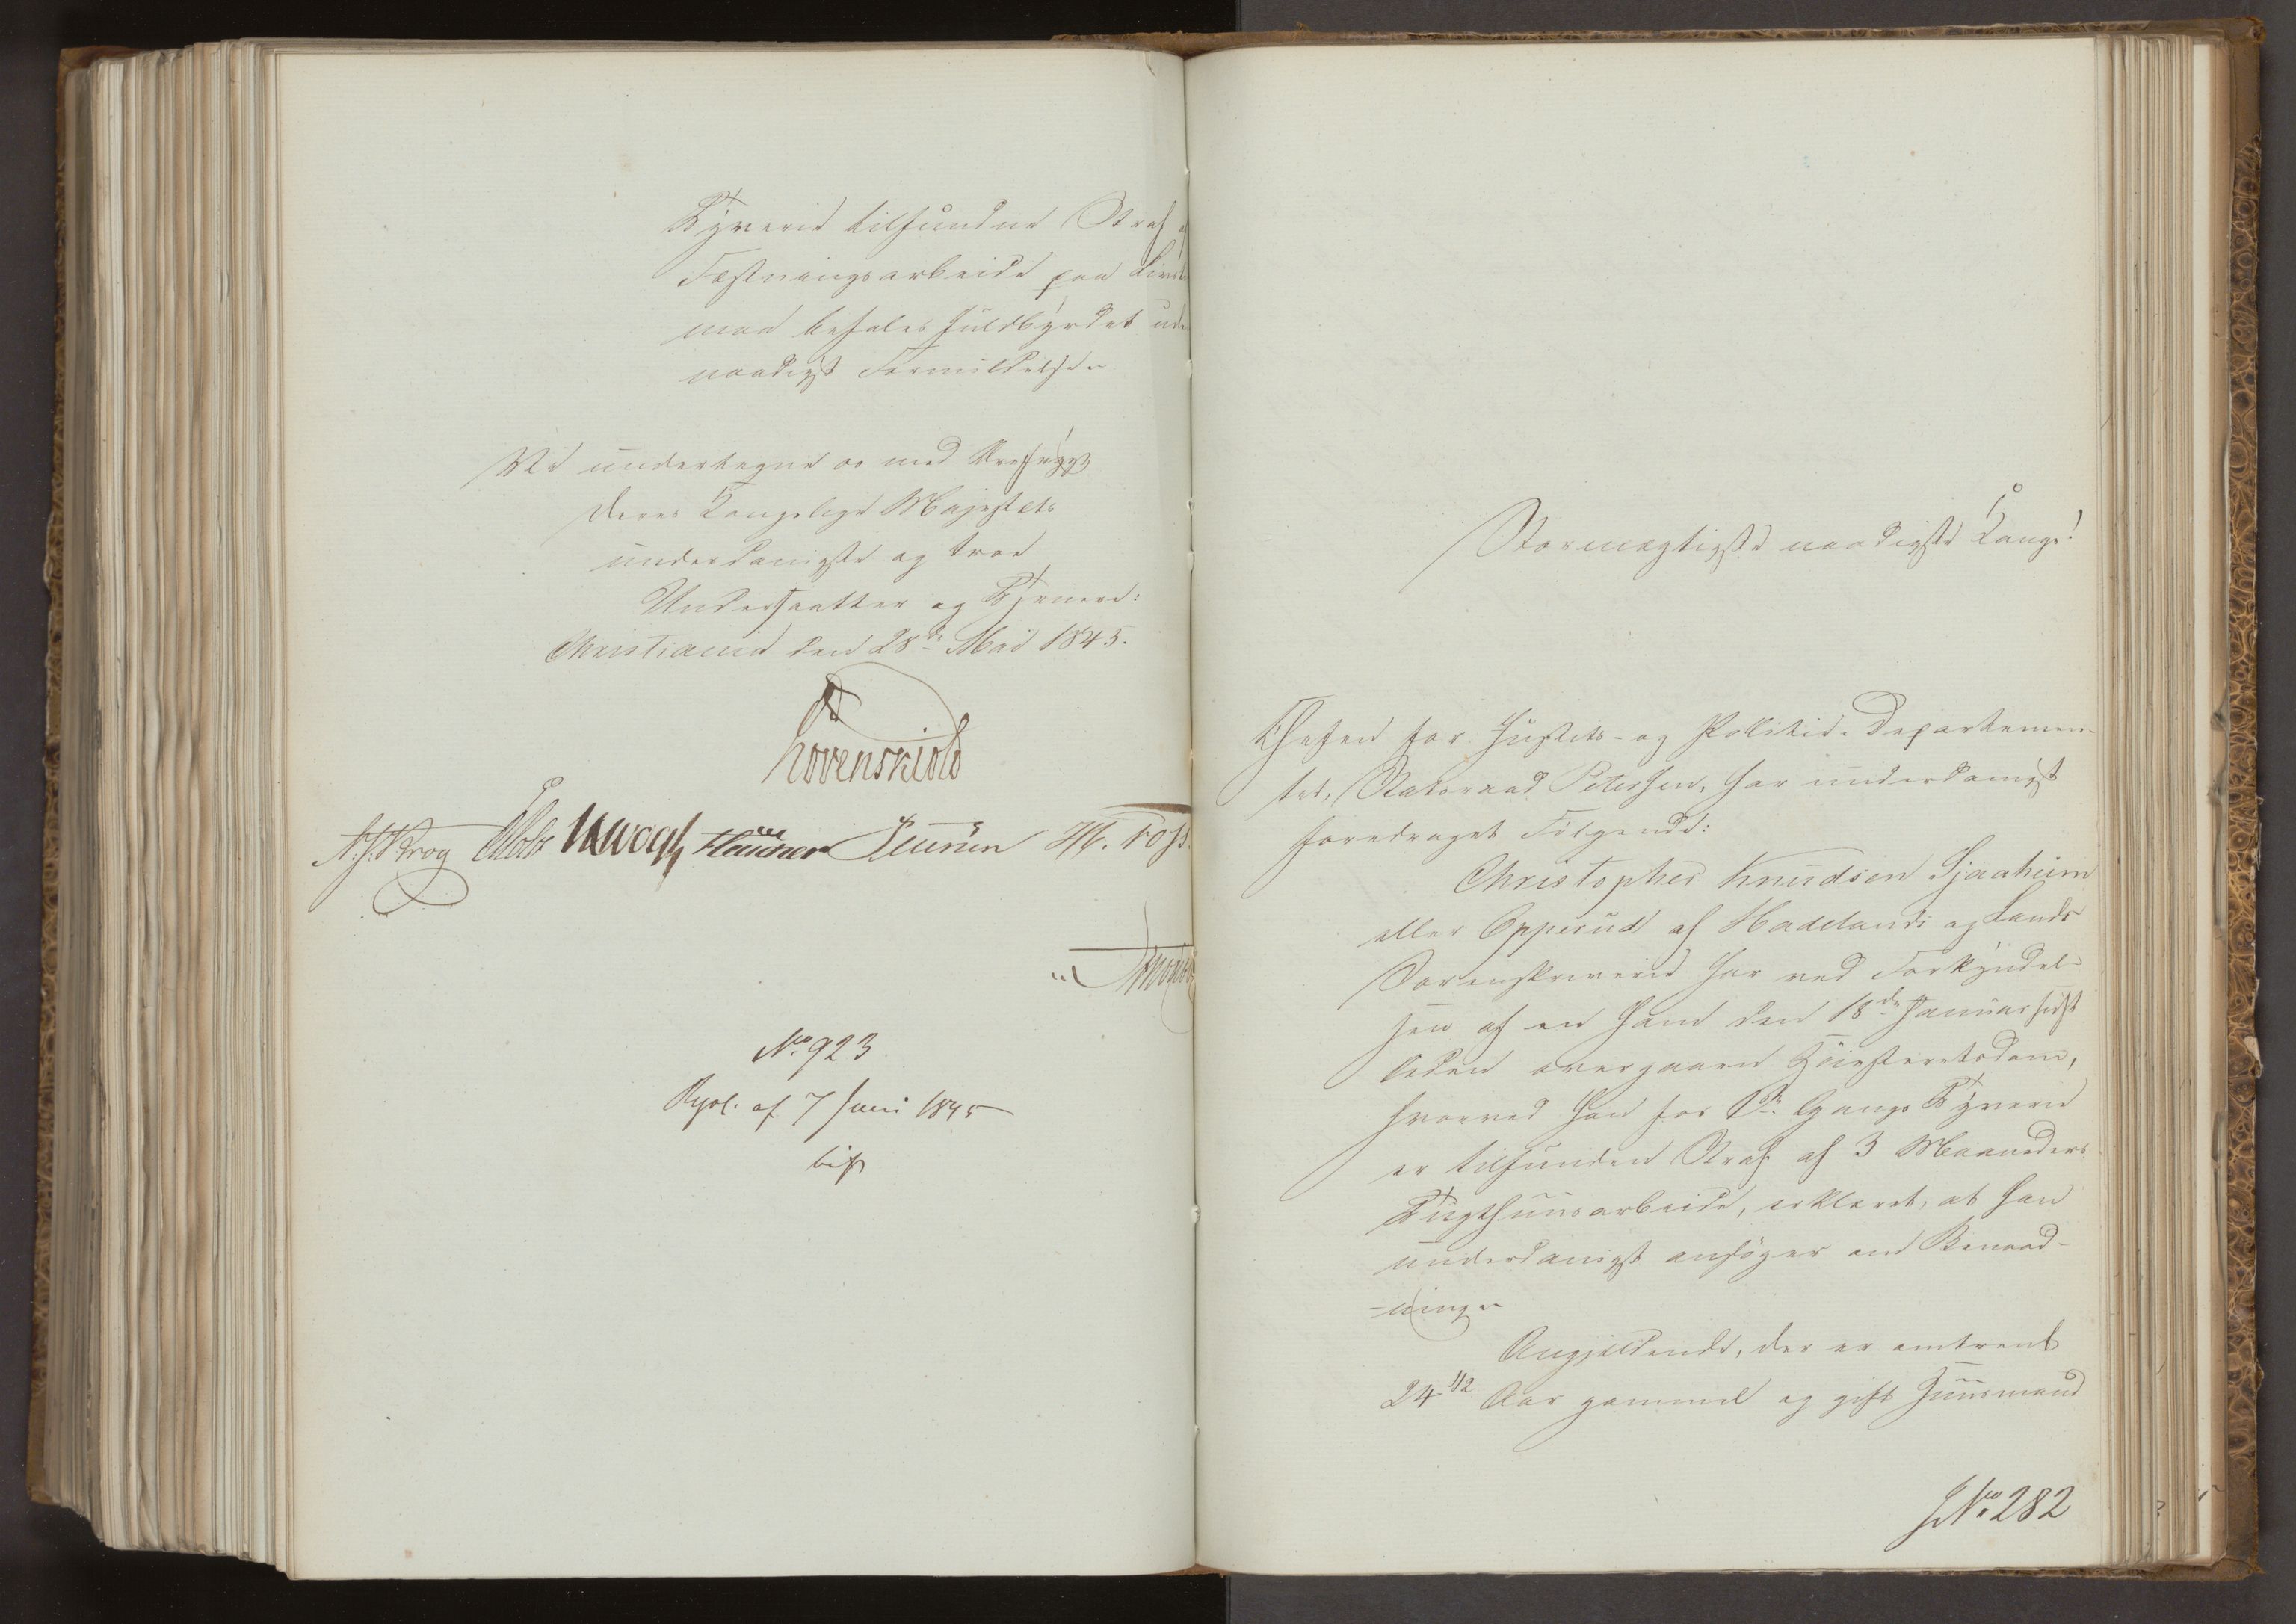 Tyverie tilfundne Straf af
Fæstningsarbeide paa Livstid
maa befales fuldbyrdet uden
naadigst Formildelse.
Vi undertegne os med Ærefrygt
Deres Kongelige Majestæts
underdanigste og troe
Undersaatter og Tjenere:
Christiania den 28de Mai 1845.
Løvenskiold
N: J: Krog Vogt Petersen H. Foss
No 923
Resol. af 7 Juni 1845
Stormægtigste naadigste Konge!
Chefen for Justits- og Politie-Departemen-
tet, Statsraad Petersen, har underdanigst
foredraget Følgende:
Christopher Knudsen Sjaaheim
eller Opperud af Hadelands og Lands
Sorenskriverie har ved Forkyndel-
sen af en ham den 18de Januar sidst-
leden overgaaen Høiesteretsdom,
hvorved han for 2den Gangs Tyverie
er tilfunden Straf af 3 Maaneders
Tugthuusarbeide, erklæret, at han
underdanigst ansøger om Benaad-
-ning.
Angjeldende, der er omtrent
24 1/2 Aar gammel og gift Huusmand
JNo 282